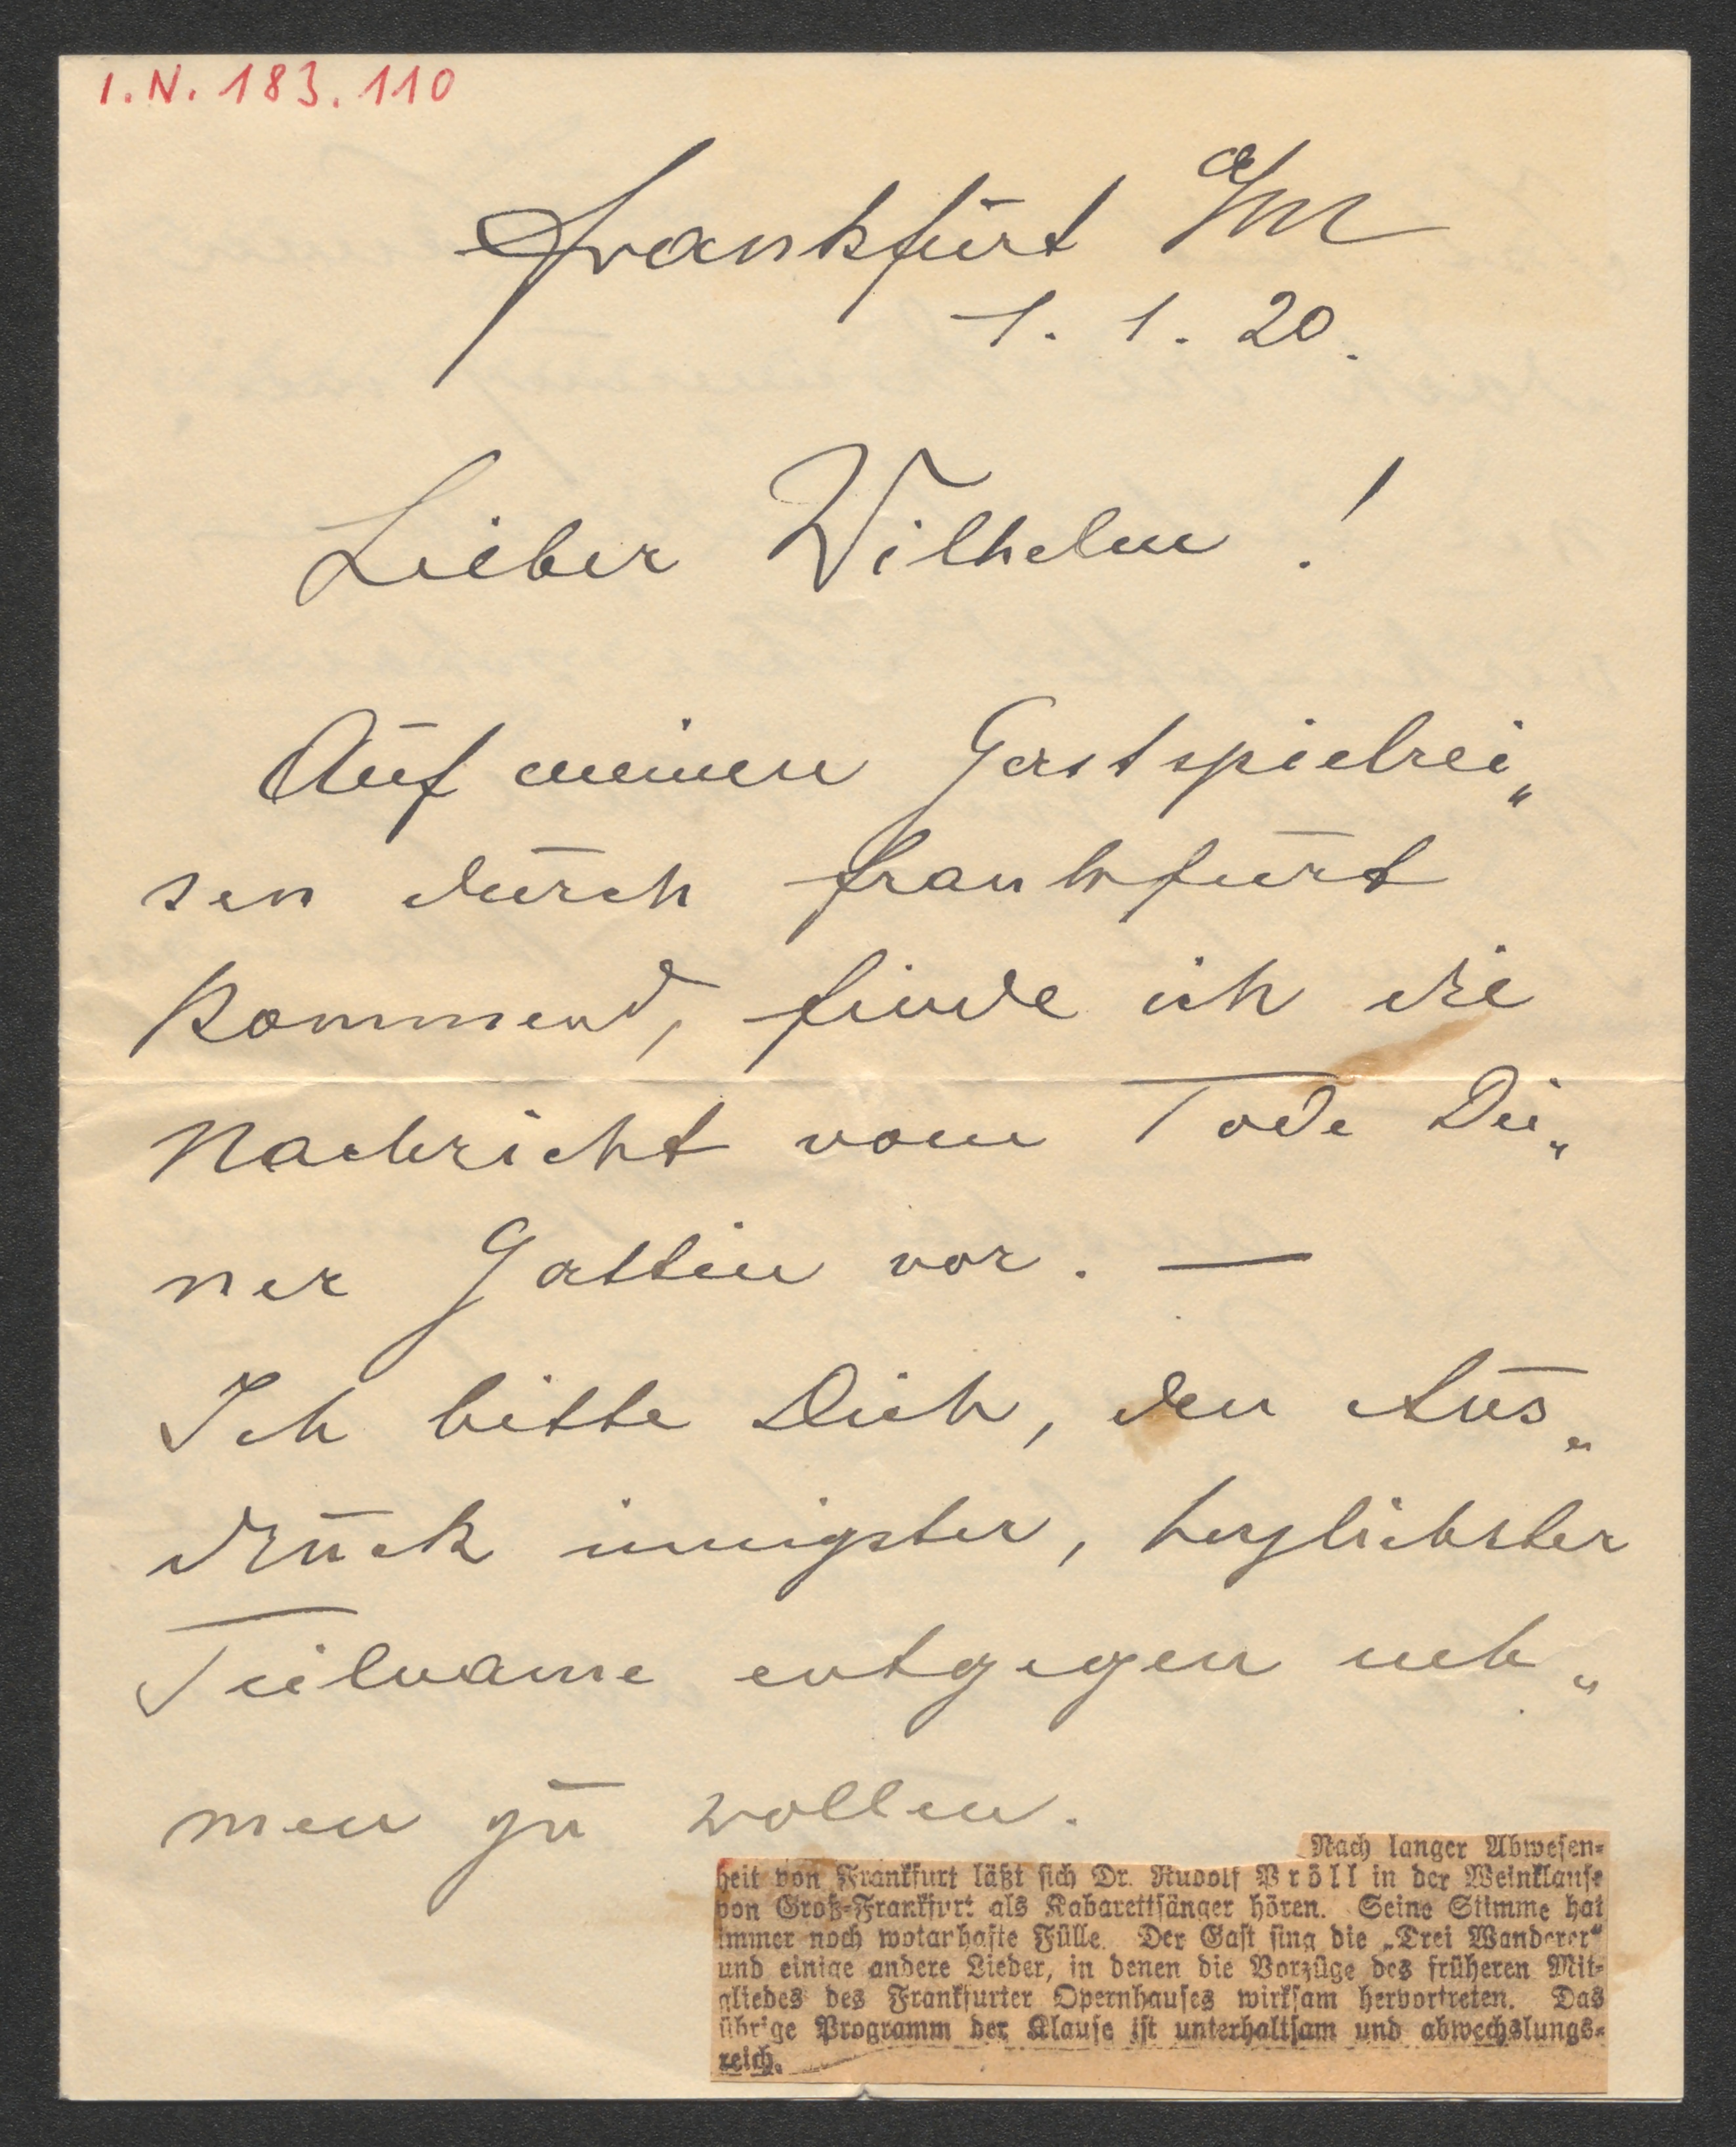 I.N. 183.110
Frankfurt a/M
1. 1. 20.
Lieber Wilhelm!
Auf meinen Gastspielrei„
sen durch Frankfurt
kommend, finde ich die
Nachricht vom Tode Dei„
ner Gattin vor. —
Ich bitte Dich, den Aus„
druck innigster, herzlichster
Teilname entgegen neh„
men zu wollen.
Nach langer Abwesen-
heit von Frankfurt läßt sich Dr. Rudolf Pröll in der Weinklause
von Groß-Frankfurt als Kabarettsänger hören. Seine Stimme hat
immer noch wotanhafte Fülle. Der Gast sing die „Drei Wanderer“
und einige andere Lieder, in denen die Vorzüge des früheren Mit-
gliedes des Frankfurter Opernhauses wirksam hervortreten. Das
übrige Programm der Klause ist unterhaltsam und abwechslungs-
reich.